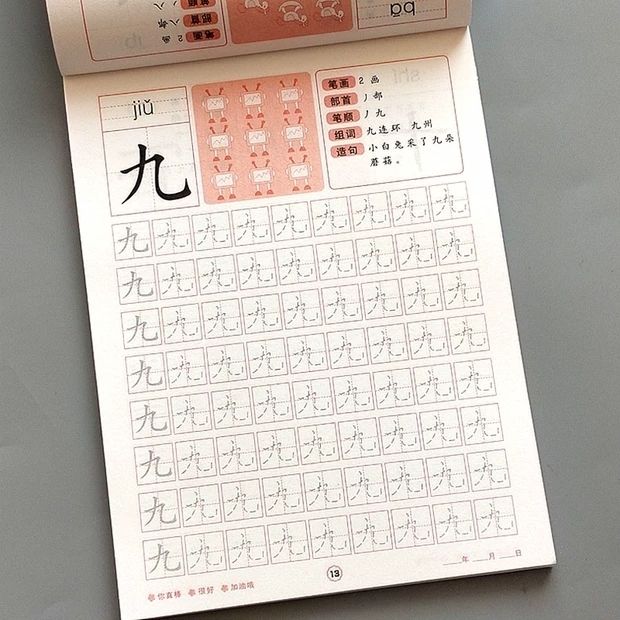 bā
笔画 2 画
部首 八部
笔顺 丿八
jiǔ
九
笔画 2 画
部首 丿部
笔顺 丿九
组词 九连环 九州
造句 小白兔采了九朵
蘑菇。
九 九 九 九 九 九 九 九 九
九 九 九 九 九 九 九 九 九
九 九 九 九 九 九 九 九 九
九 九 九 九 九 九 九 九 九
九 九 九 九 九 九 九 九 九
九 九 九 九 九 九 九 九 九
九 九 九 九 九 九 九 九 九
九 九 九 九 九 九 九 九 九
你真棒 很好 加油哦
13
年 月 日